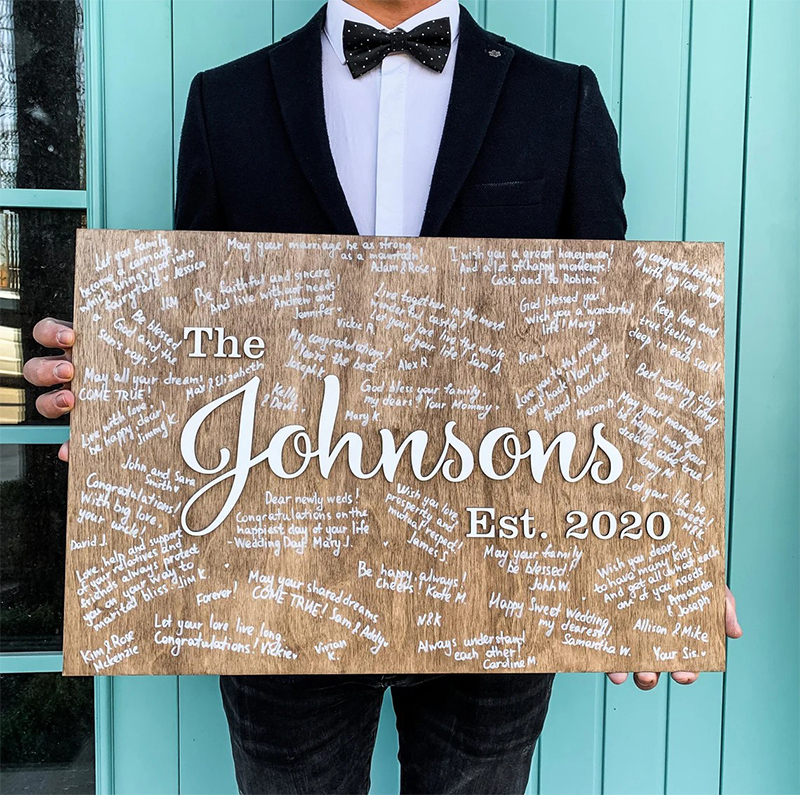 Let you family
become a carriage
which brings you into
a fairytale! Jessica
May your marriage be as strong
as a mountain!
Adam & Rose
I wish you a great honeymoon!
And a lot of happy moments!
Casie and so Robins.
My congratulations
with big love,
Be faithful and sincere
And live with out needs!
Andrew and
Jennifer
Vickie R
Live together in the
Let your love
of your life! Sam A
God blessed you!
Wish you a wonderful
life! Mary.
Keep love and
true feelings
deep in each soul!
Be blessed
God and the
sun's rays!
The
My congratulations!
You're the best.
Joseph K
Alex R
Kim J.
Love you to the moon
and back! Your best
friend Rachel
May all your dreams
COME TRUE!
May! Elizabeth
Kelly
& David
God bless your family,
my dears! Your Mommy
Mary K
Mason D.
Best wedding day!
Love! Johny
Live with love,
be happy dear!
Jimmy K.
Johnsons
May your marriage
be happy, may your
dreams come true!
John and Sara
Smith
Congratulations!
With big love,
your uncle!
David J.
Dear newly weds!
Congratulations on the
happiest day of your life
- Wedding Day! Mary J.
Wish you love,
prosperity and
mutual respect!
James S.
Est. 2020
Let your life be
sweet!
Love, help and support
of your relatives and
friends always protect
you on your way to
married bliss! Jim K.
Forever!
May your shared dreams
COME TRUE! Sam & Addy
Be happy always!
Cheers! Kate M.
May your family
be blessed!
John W.
Wish you dear,
to have many kids!
And get all what each
one of you needs!
Amanda
& Joseph
Happy Sweet Wedding,
my dearest!
Samantha W.
N&K
Kim & Rose
Mckenzie
Let your love live long
Congratulations! Vickie
Vivian
K.
Always understand
each other!
Caroline M.
Allison & Mike
Your Sis.